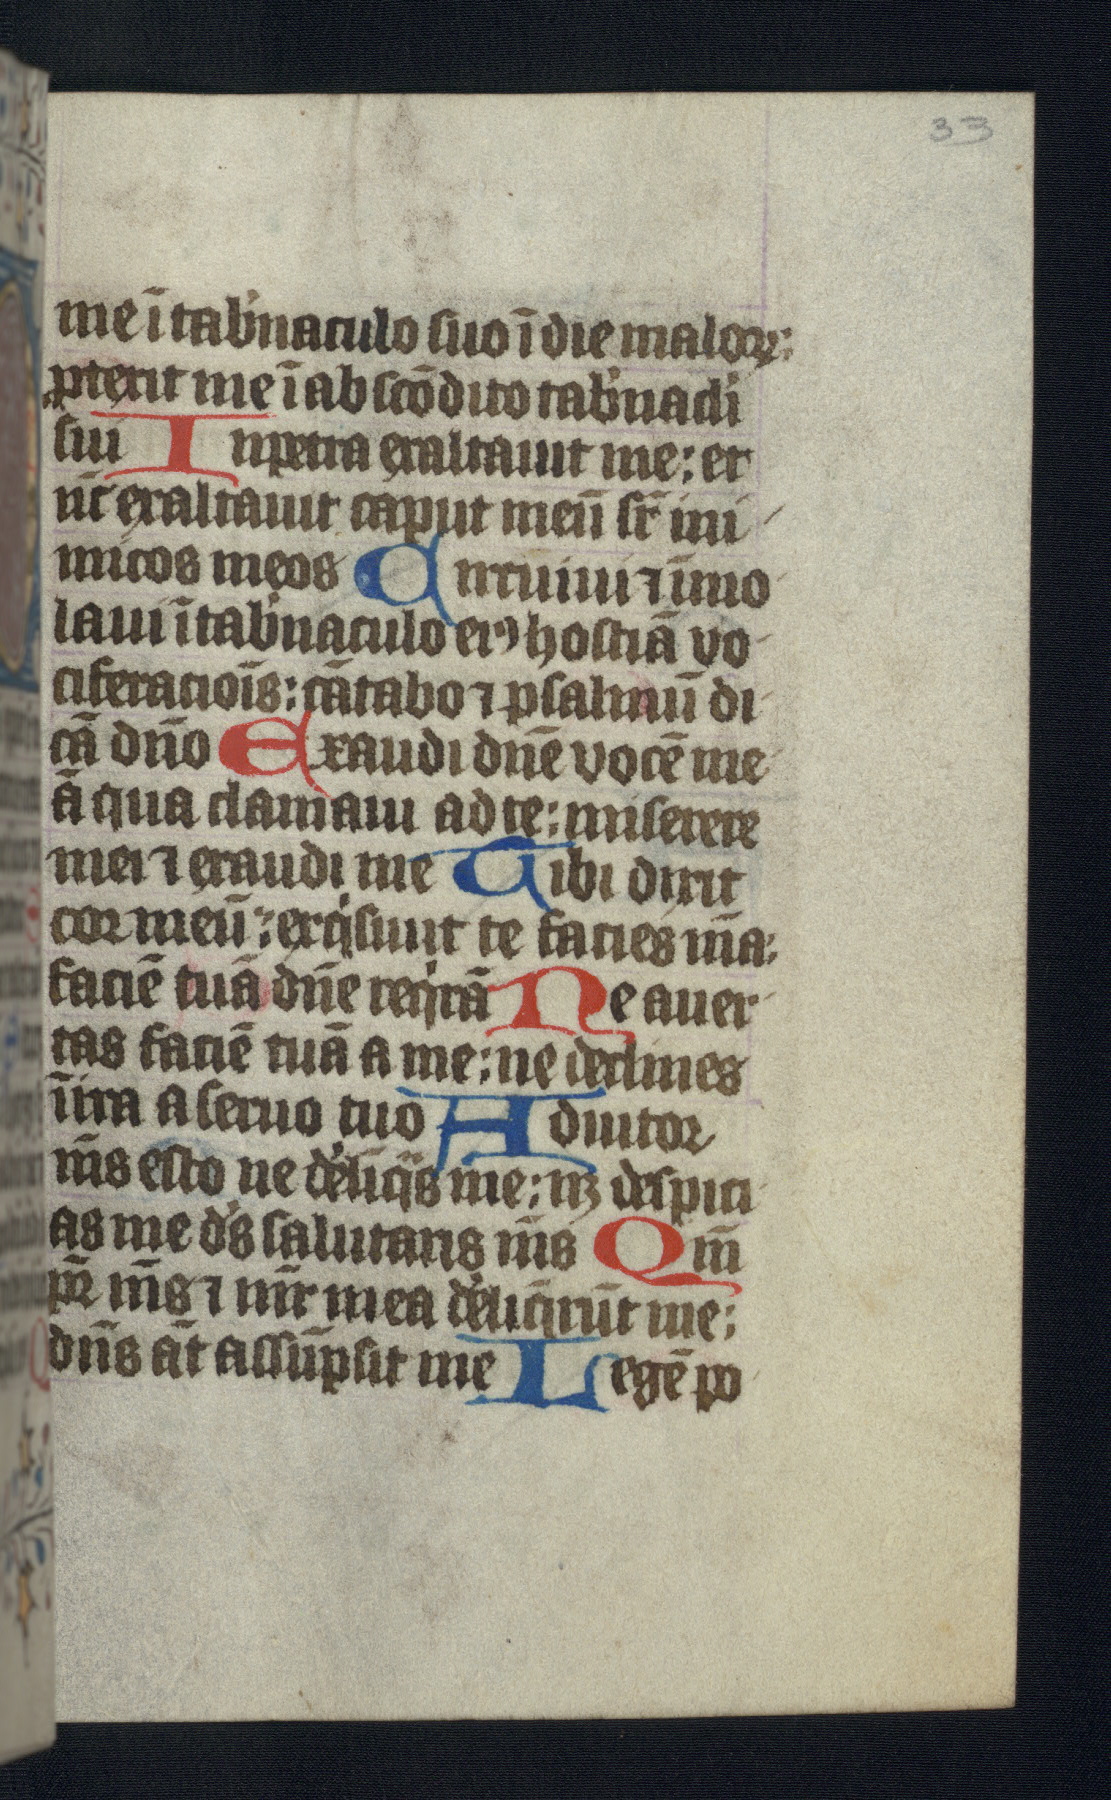 33
me ī tab̓naculo suo ī die malorꝝ:
ꝓterit me ī abscōdito tab̓nacli
sui In petra exaltauit me: et
nc̄ exaltauit caput meū sr̄ ini
micos meos Circuiui ⁊ īmo
laui ī tab̓naculo eiꝰ hostiā vo
ciferaciois̄: cātabo ⁊ psalmū di
cā dn̄o Exaudi dn̄e vocē me
ā qua clamaui ad te: miserere
mei ⁊ exaudi me Tibi dixit
cor meū: exqͥsiuit te facies m̄a:
faciē tuā dn̄e reqͥrā Ne auer
tas faciē tuā a me: ne declines
ī ira a seruo tuo Adiutor
m̄s esto ne d̓eliqͣs me: nꝫ despici
as me d̓s salutaris m̄s Qm̄
pr̄ m̄s ⁊ mr̄ mea d̓eliqͥrūt me:
dn̄s at̄ assūpsit me Legē po